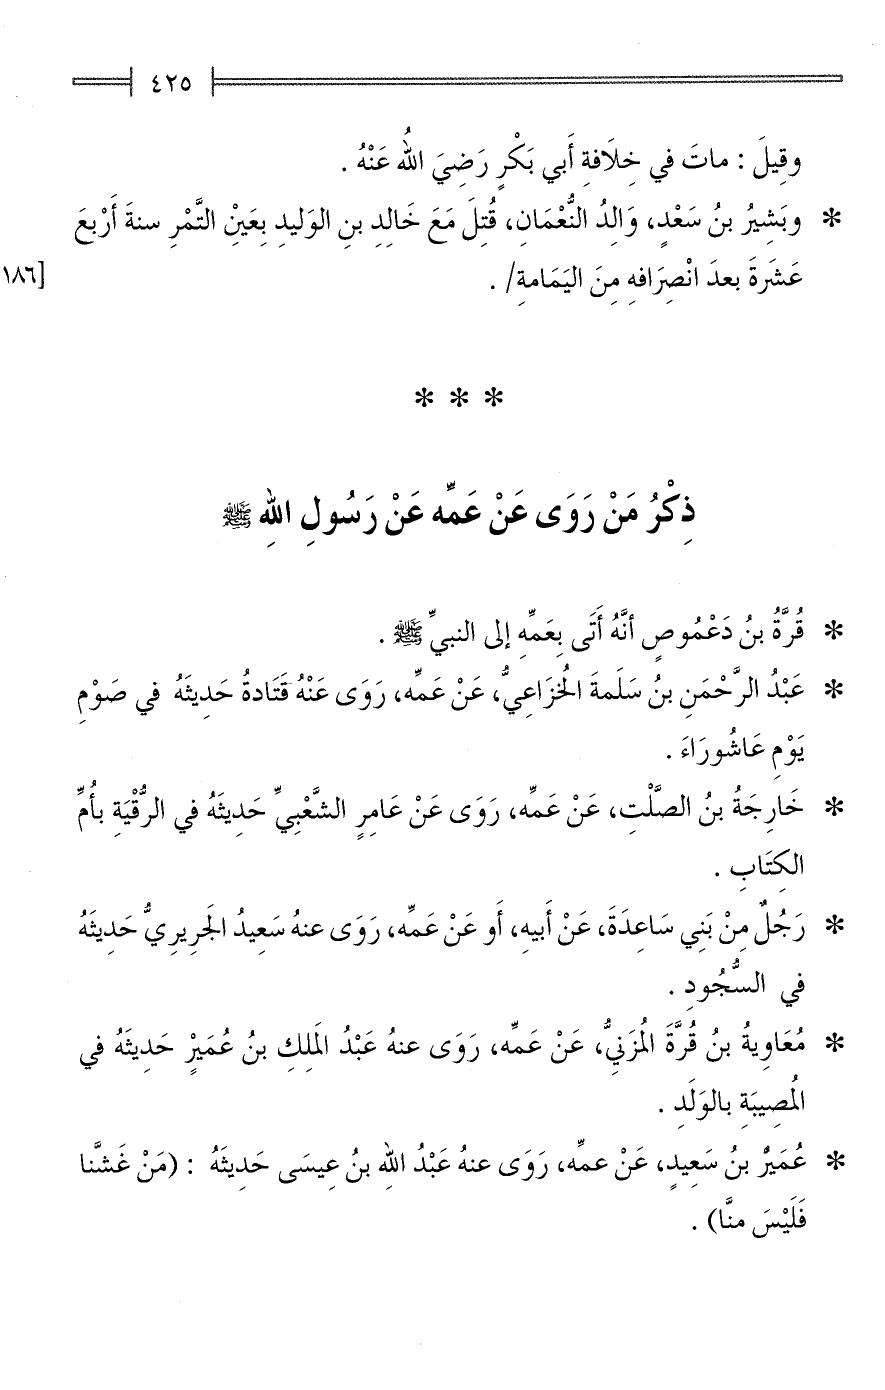 ٤٢٥
وقِيلَ : ماتَ في خِلَافةِ أَبي بَكْرٍ رَضِيَ اللهُ عَنْهُ .
* وبَشِيرُ بنُ سَعْدٍ، وَالِدُ النُّعْمَانِ، قُتِلَ مَعَ خَالِدِ بنِ الوَليدِ بِعَيْنِ التَّمْرِ سنةَ أَرْبعَ
عَشَرَةَ بعدَ انْصِرَافهِ مِنَ اليَمَامةِ/ .
[١٨٦
* * *
ذِكْرُ مَنْ رَوَى عَنْ عَمِّه عَنْ رَسُولِ اللهِ ﷺ
* قُرَّةُ بنُ دَعْمُوصٍ أنَّهُ أَتَى بِعَمِّهِ إلى النبيِّ ﷺ .
* عَبْدُ الرَّحْمَنِ بنُ سَلَمةَ الخُزَاعِيُّ، عَنْ عَمِّه، رَوَى عَنْهُ قَتَادةُ حَدِيثَهُ في صَوْمِ
يَوْمِ عَاشُورَاءَ .
* خَارِجَةُ بنُ الصَّلْتِ، عَنْ عَمِّه، رَوَى عَنْ عَامِرٍ الشَّعْبِيِّ حَدِيثَهُ في الرُّقْيَةِ بأُمِّ
الكِتَابِ .
* رَجُلٌ مِنْ بَنِي سَاعِدَةَ، عَنْ أَبيهِ، أَو عَنْ عَمِّه، رَوَى عنهُ سَعِيدُ الجَرِيرِيُّ حَدِيثَهُ
في السُّجُودِ .
* مُعَاوِيةُ بنُ قُرَّةَ المُزَنِيُّ، عَنْ عَمِّه، رَوَى عنهُ عَبْدُ المَلِكِ بنُ عُمَيْرٍ حَدِيثَهُ في
المُصِيبَةِ بالوَلَدِ .
* عُمَيْرُ بنُ سَعِيدٍ، عَنْ عمِّه، رَوَى عنهُ عَبْدُ اللهِ بنُ عِيسَى حَدِيثَهُ : (مَنْ غَشَّنا
فَلَيْسَ منَّا) .